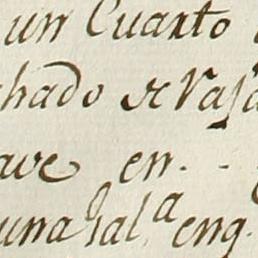 un Cuarto
chado de Vas
ave en. -
una sal.ª enq.